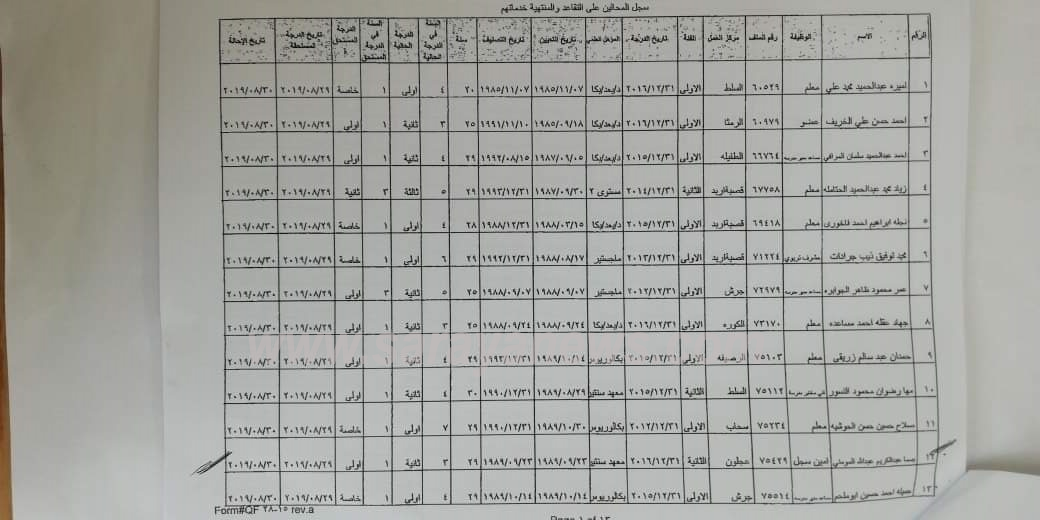 سجل المحالين على التقاعد والمنتهية خدماتهم
الرقم الاسم الوظيفة رقم الملف مركز العمل الفئة تاريخ الدرجة المؤهل العلمي تاريخ التعيين تاريخ التصنيف سنة السنة في الدرجة الحالية الدرجة الحالية السنة في الدرجة المستحق الدرجة المستحق تاريخ الدرجة المستحقة تاريخ الإحالة
١ اميره عبدالحميد محمد علي معلم ٦٠٥٢٩ السلط الاولى ٢٠١٦/١٢/٣١ د/بعد/بكا ١٩٨٥/١١/٠٧ ١٩٨٥/١١/٠٧ ٢٠ ٤ اولى ١ خاصة ٢٠١٩/٠٨/٢٩ ٢٠١٩/٠٨/٣٠
٢ احمد حسن علي الخريف عضو ٦٠٩٧٩ الرمثا الاولى ٢٠١٦/١٢/٣١ د/بعد/بكا ١٩٨٥/٠٩/١٨ ١٩٩١/١١/١٠ ٢٥ ٣ ثانية ١ اولى ٢٠١٩/٠٨/٢٩ ٢٠١٩/٠٨/٣٠
٣ احمد عبدالحميد سلمان المرافي ٦٦٧٦٤ الطفيله الاولى ٢٠١٥/١٢/٣١ د/بعد/بكا ١٩٨٧/٠٦/٠٥ ١٩٩٢/٠٨/١٥ ٢٩ ٤ ثانية ١ اولى ٢٠١٩/٠٨/٢٩ ٢٠١٩/٠٨/٣٠
٤ زياد محمد عبدالحميد الحتامله معلم ٦٧٧٥٨ قصبة اربد الثانية ٢٠١٤/١٢/٣١ مستوى ٢ ١٩٨٧/٠٩/٣٠ ١٩٩٣/١٢/٣١ ٢٩ ٥ ثالثة ٣ ثانية ٢٠١٩/٠٨/٢٩ ٢٠١٩/٠٨/٣٠
٥ نجله ابراهيم احمد فاخورى معلم ٦٩٤١٨ قصبة اربد الاولى ٢٠١٥/١٢/٣١ د/بعد/بكا ١٩٨٨/٠٣/١٥ ١٩٨٨/١٢/٣١ ٢٨ ٤ اولى ١ خاصة ٢٠١٩/٠٨/٢٩ ٢٠١٩/٠٨/٣٠
٦ محمد توفيق ذيب جرادات مشرف تربوي ٧١٢٢٤ قصبة اربد الاولى ٢٠١٣/١٢/٣١ ماجستير ١٩٨٨/٠٨/١٧ ١٩٩٢/١٢/٣١ ٢٩ ٦ اولى ١ خاصة ٢٠١٩/٠٨/٢٩ ٢٠١٩/٠٨/٣٠
٧ عمر محمود ظاهر الجوابره ٧٢٩٧٩ جرش الاولى ٢٠١٢/١٢/٣١ ماجستير ١٩٨٨/٠٩/٠٧ ١٩٨٨/٠٩/٠٧ ٢٥ ٥ ثانية ٣ اولى ٢٠١٩/٠٨/٢٩ ٢٠١٩/٠٨/٣٠
٨ جهاد عقله احمد مساعده معلم ٧٣١٧٠ الكوره الاولى ٢٠١٦/١٢/٣١ د/بعد/بكا ١٩٨٨/٠٩/٢٤ ١٩٨٨/٠٩/٢٤ ٢٥ ٣ ثانية ١ اولى ٢٠١٩/٠٨/٢٩ ٢٠١٩/٠٨/٣٠
٩ حمدان عبد سالم زريقي معلم ٧٥١٠٣ الرصيفه الاولى ٢٠١٥/١٢/٣١ بكالوريوس ١٩٨٩/١٠/١٤ ١٩٩٣/١٢/٣١ ٢٩ ٤ ثانية ١ اولى ٢٠١٩/٠٨/٢٩ ٢٠١٩/٠٨/٣٠
١٠ مها رضوان محمود النسور ٧٥١١٢ السلط الثانية ٢٠١٥/١٢/٣١ معهد سنتين ١٩٨٩/٠٨/٢٩ ١٩٩٠/١٢/٣١ ٣٠ ٤ ثانية ١ اولى ٢٠١٩/٠٨/٢٩ ٢٠١٩/٠٨/٣٠
١١ صلاح حسين حسن الحوشيه معلم ٧٥٢٣٤ سحاب الاولى ٢٠١٢/١٢/٣١ بكالوريوس ١٩٨٩/١٠/٣٠ ١٩٩٠/١٢/٣١ ٢٩ ٧ اولى ١ خاصة ٢٠١٩/٠٨/٢٩ ٢٠١٩/٠٨/٣٠
١٢ عبدالكريم عبدالله المومني امين سجل ٧٥٤٢٩ عجلون الثانية ٢٠١٦/١٢/٣١ معهد سنتين ١٩٨٩/٠٩/٢٣ ١٩٨٩/٠٩/٢٣ ٢٩ ٣ ثانية ١ اولى ٢٠١٩/٠٨/٢٩ ٢٠١٩/٠٨/٣٠
١٣ جميله احمد حسين ابوملحم ٧٥٥١٤ جرش الاولى ٢٠١٥/١٢/٣١ بكالوريوس ١٩٨٩/١٠/١٤ ١٩٨٩/١٠/١٤ ٢٩ ٤ اولى ١ خاصة ٢٠١٩/٠٨/٢٩ ٢٠١٩/٠٨/٣٠
Form#QF ٢٨-١٥ rev.a
Page ١ of ١٣